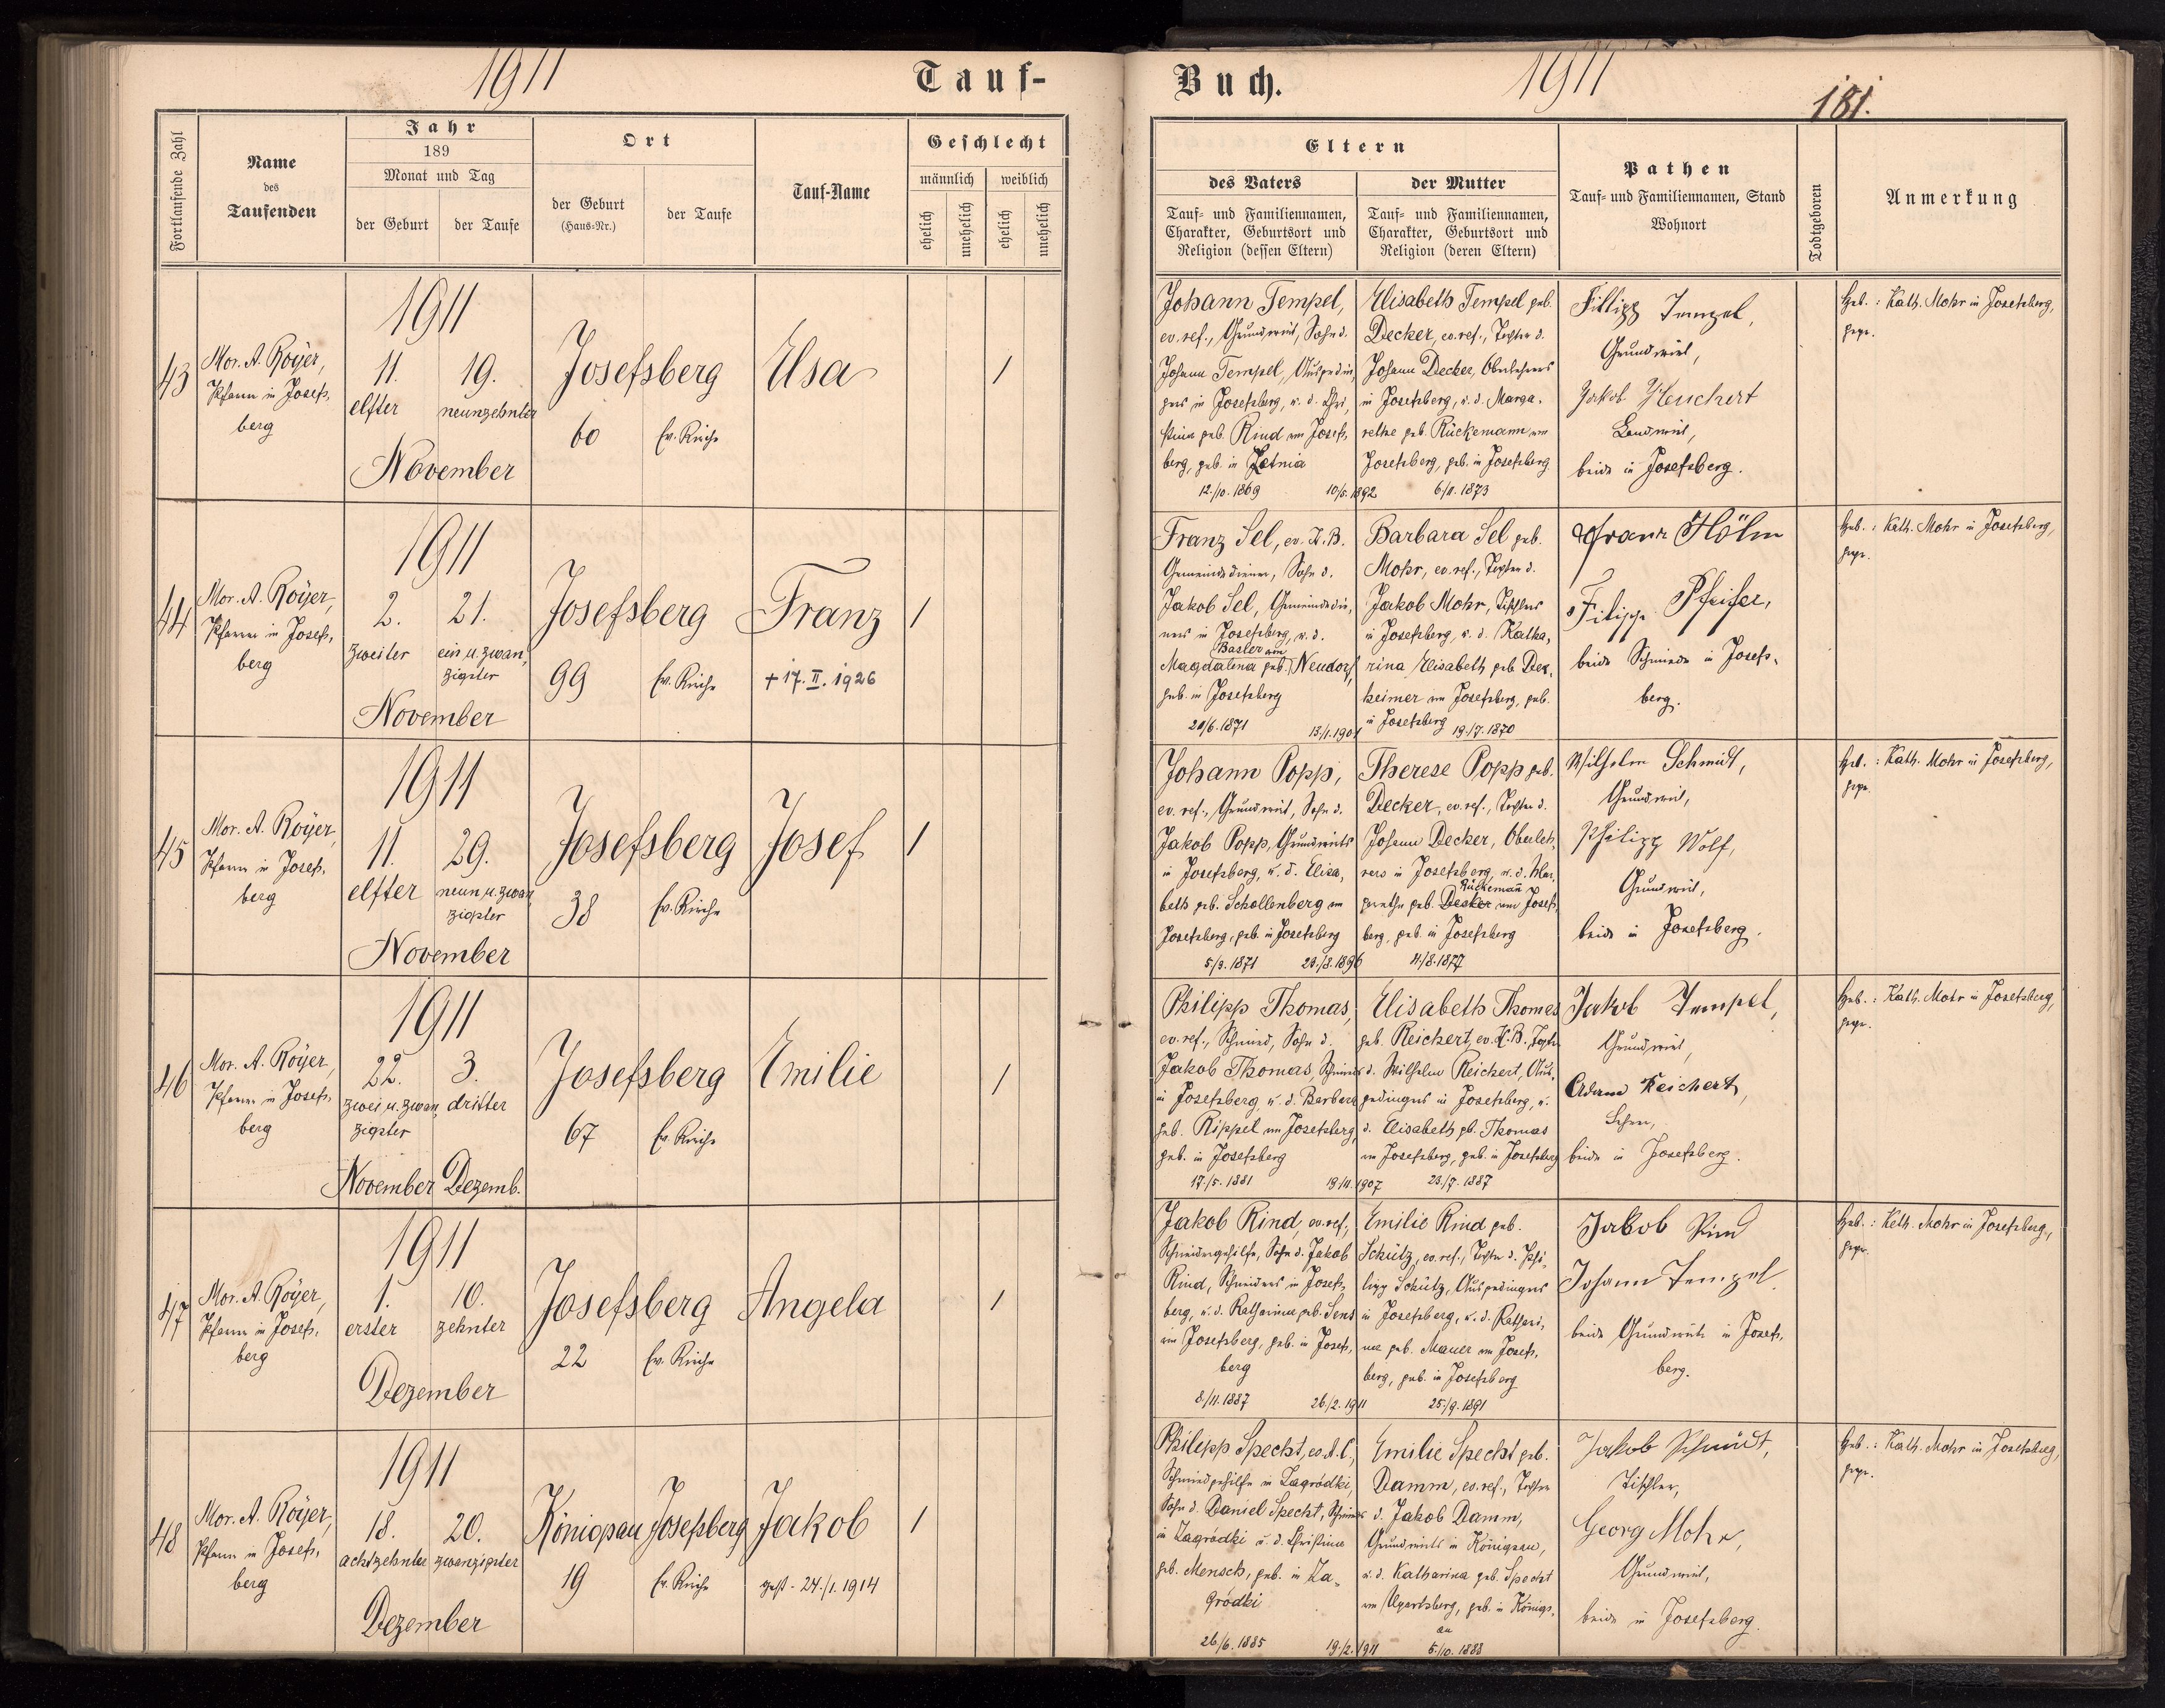 1911
Tauf-
Fortlaufende Zahl
Name
des
Taufenden
Jahr
189
Monat und Tag
der Geburt
der Taufe
Ort
der Geburt
(Haus-Nr.)
der Taufe
Tauf-Name
Geschlecht
männlich
weiblich
ehelich
unehelich
ehelich
unehelich
43
Mor. A. Royer,
Pfarrer in Josefs-
berg
1911
11.
19.
elfter
neunzehnter
November
Josefsberg
60
Ev. Kirche
Elsa
1
44
Mor. A. Royer,
Pfarrer in Josefs-
berg
1911
2.
21.
zweiter
ein u. zwan-
zigster
November
Josefsberg
99
Ev. Kirche
Franz
+ 17. II. 1926
1
45
Mor. A. Royer
Pfarrer in Josefs-
berg
1911
11.
29.
elfter
neun u. zwan
zigster
November
Josefsberg
38
Ev. Kirche
Josef
1
46
Mor. A. Royer,
Pfarrer in Josefs-
berg
1911
22.
3.
zwei u. zwan
dritter
zigster
November
Dezemb.
Josefsberg
67
Ev. Kirche
Emilie
1
47
Mor. A. Royer,
Pfarrer in Josefs-
berg
1911
1.
10.
erster
zehnter
Dezember
Josefsberg
22
Ev. Kirche
Angela
1
48
Mor. A. Royer,
Pfarrer in Josefs-
berg
1911
18.
20.
achtzehnter
zwanzigster
Dezember
Königsau
Josefsberg
19
Ev. Kirche
Jakob
gest. 24./1. 1914
1
Buch.
1911
181.
Eltern
des Vaters
Tauf- und Familiennamen,
Charakter, Geburtsort und
Religion (dessen Eltern)
der Mutter
Tauf- und Familiennamen,
Charakter, Geburtsort und
Religion (deren Eltern)
Pathen
Tauf- und Familiennamen, Stand
Wohnort
Todtgeboren
Anmerkung
Johann Tempel,
ev. ref., Grundwirt, Sohn d.
Johann Tempel, Ausgedin-
gers in Josefsberg, u. d. Chri-
stina geb. Rind von Josefs-
berg, geb. in Letnia
12./10. 1869
10/5. 1892
Elisabeth Tempel geb.
Decker, ev. ref., Tochter d.
Johann Decker, Oberlehrers
in Josefsberg, u. d. Marga-
rethe geb. Rückemann von
Josefsberg, geb. in Josefsberg
6/11. 1873
Fillipp Tempel,
Grundwirt,
Jakob Heuchert
Landwirt,
beide in Josefsberg.
Heb.: Kath. Mohr in Josefsberg,
gepr.
Franz Sel, ev. H. B.
Gemeindediener, Sohn d.
Jakob Sel, Gemeindedie-
ners in Josefsberg, u. d.
Basler von
Magdalena geb. Neudorf,
geb. in Josefsberg
20/6. 1871
13/1. 1901
Barbara Sel geb.
Mohr, ev. ref., Tochter d.
Jakob Mohr, Tischlers
in Josefsberg, u. d. Katha-
rina Elisabeth geb. Dex-
heimer von Josefsberg, geb.
in Josefsberg
19./7. 1870
Franz Höhn
Filipp Pfeifer,
beide Schmiede in Josefs-
berg.
Heb.: Kath. Mohr in Josefsberg,
gepr.
Johann Popp,
ev. ref., Grundwirt, Sohn d.
Jakob Popp, Grundwirts
in Josefsberg, u. d. Elisa-
beth geb. Schollenberg von
Josefsberg, geb. in Josefsberg
5/3. 1871
23./8. 1896
Therese Popp geb.
Decker, ev. ref., Tochter d.
Johann Decker, Oberleh-
rers in Josefsberg, u. d. Mar-
Rückemann
garethe geb. Decker von Josefs-
berg, geb. in Josefsberg
4/8. 1877
Wilhelm Schmidt,
Grundwirt,
Philipp Wolf,
Grundwirt,
beide in Josefsberg.
Heb.: Kath. Mohr in Josefsberg,
gepr.
Philipp Thomas,
ev. ref., Schmied, Sohn d.
Jakob Thomas, Schmieds
in Josefsberg, u. d. Barbara
geb. Rippel von Josefsberg,
geb. in Josefsberg
17./5. 1881
19/11. 1907
Elisabeth Thomas
geb. Reichert, ev. H. B., Tochter
d. Wilhelm Reichert, Aus-
gedingers in Josefsberg, u.
d. Elisabeth gb. Thomas
von Josefsberg, geb. in Josefsberg
23./7. 1887
Jakob Tempel,
Grundwirt,
Adam Reichert,
beide in Josefsberg.
Heb.: Kath. Mohr in Josefsberg,
gepr.
Jakob Rind, ev. ref.,
Schneidergehilfe, Sohn d. Jakob
Rind, Schneiders in Josefs-
berg, u. d. Katharina geb. Sens
von Josefsberg, geb. in Josefs-
berg
8./11. 1887
26./2. 1911
Emilie Rind geb.
Schütz, ev. ref., Tochter d. Phi-
lipp Schütz, Ausgedingers
in Josefsberg, u. d. Kathari-
na geb. Mauer von Josefs-
berg, geb. in Josefsberg
25/9. 1891
Jakob Rind
Johann Tempel
beide Grundwirte in Josefs-
berg.
Heb.: Kath. Mohr in Josefsberg,
gepr.
Philipp Specht, ev. A. C.,
Schmiedgehilfe in Zagródki,
Sohn d. Daniel Specht, Schmieds
in Zagródki u. d. Christina
geb. Mensch, geb. in Za-
gródki
26/6. 1885
19./2. 1911
Emilie Specht geb.
Damm, ev. ref., Tochter
d. Jakob Damm,
Grundwirts in Königsau,
u. d. Katharina geb. Specht
von Ugartsberg, geb. in Königs-
au
5/10. 1888
Jakob Schmidt,
Tischler,
Georg Mohr,
Grundwirt,
beide in Josefsberg.
Heb.: Kath. Mohr in Josefsberg,
gepr.